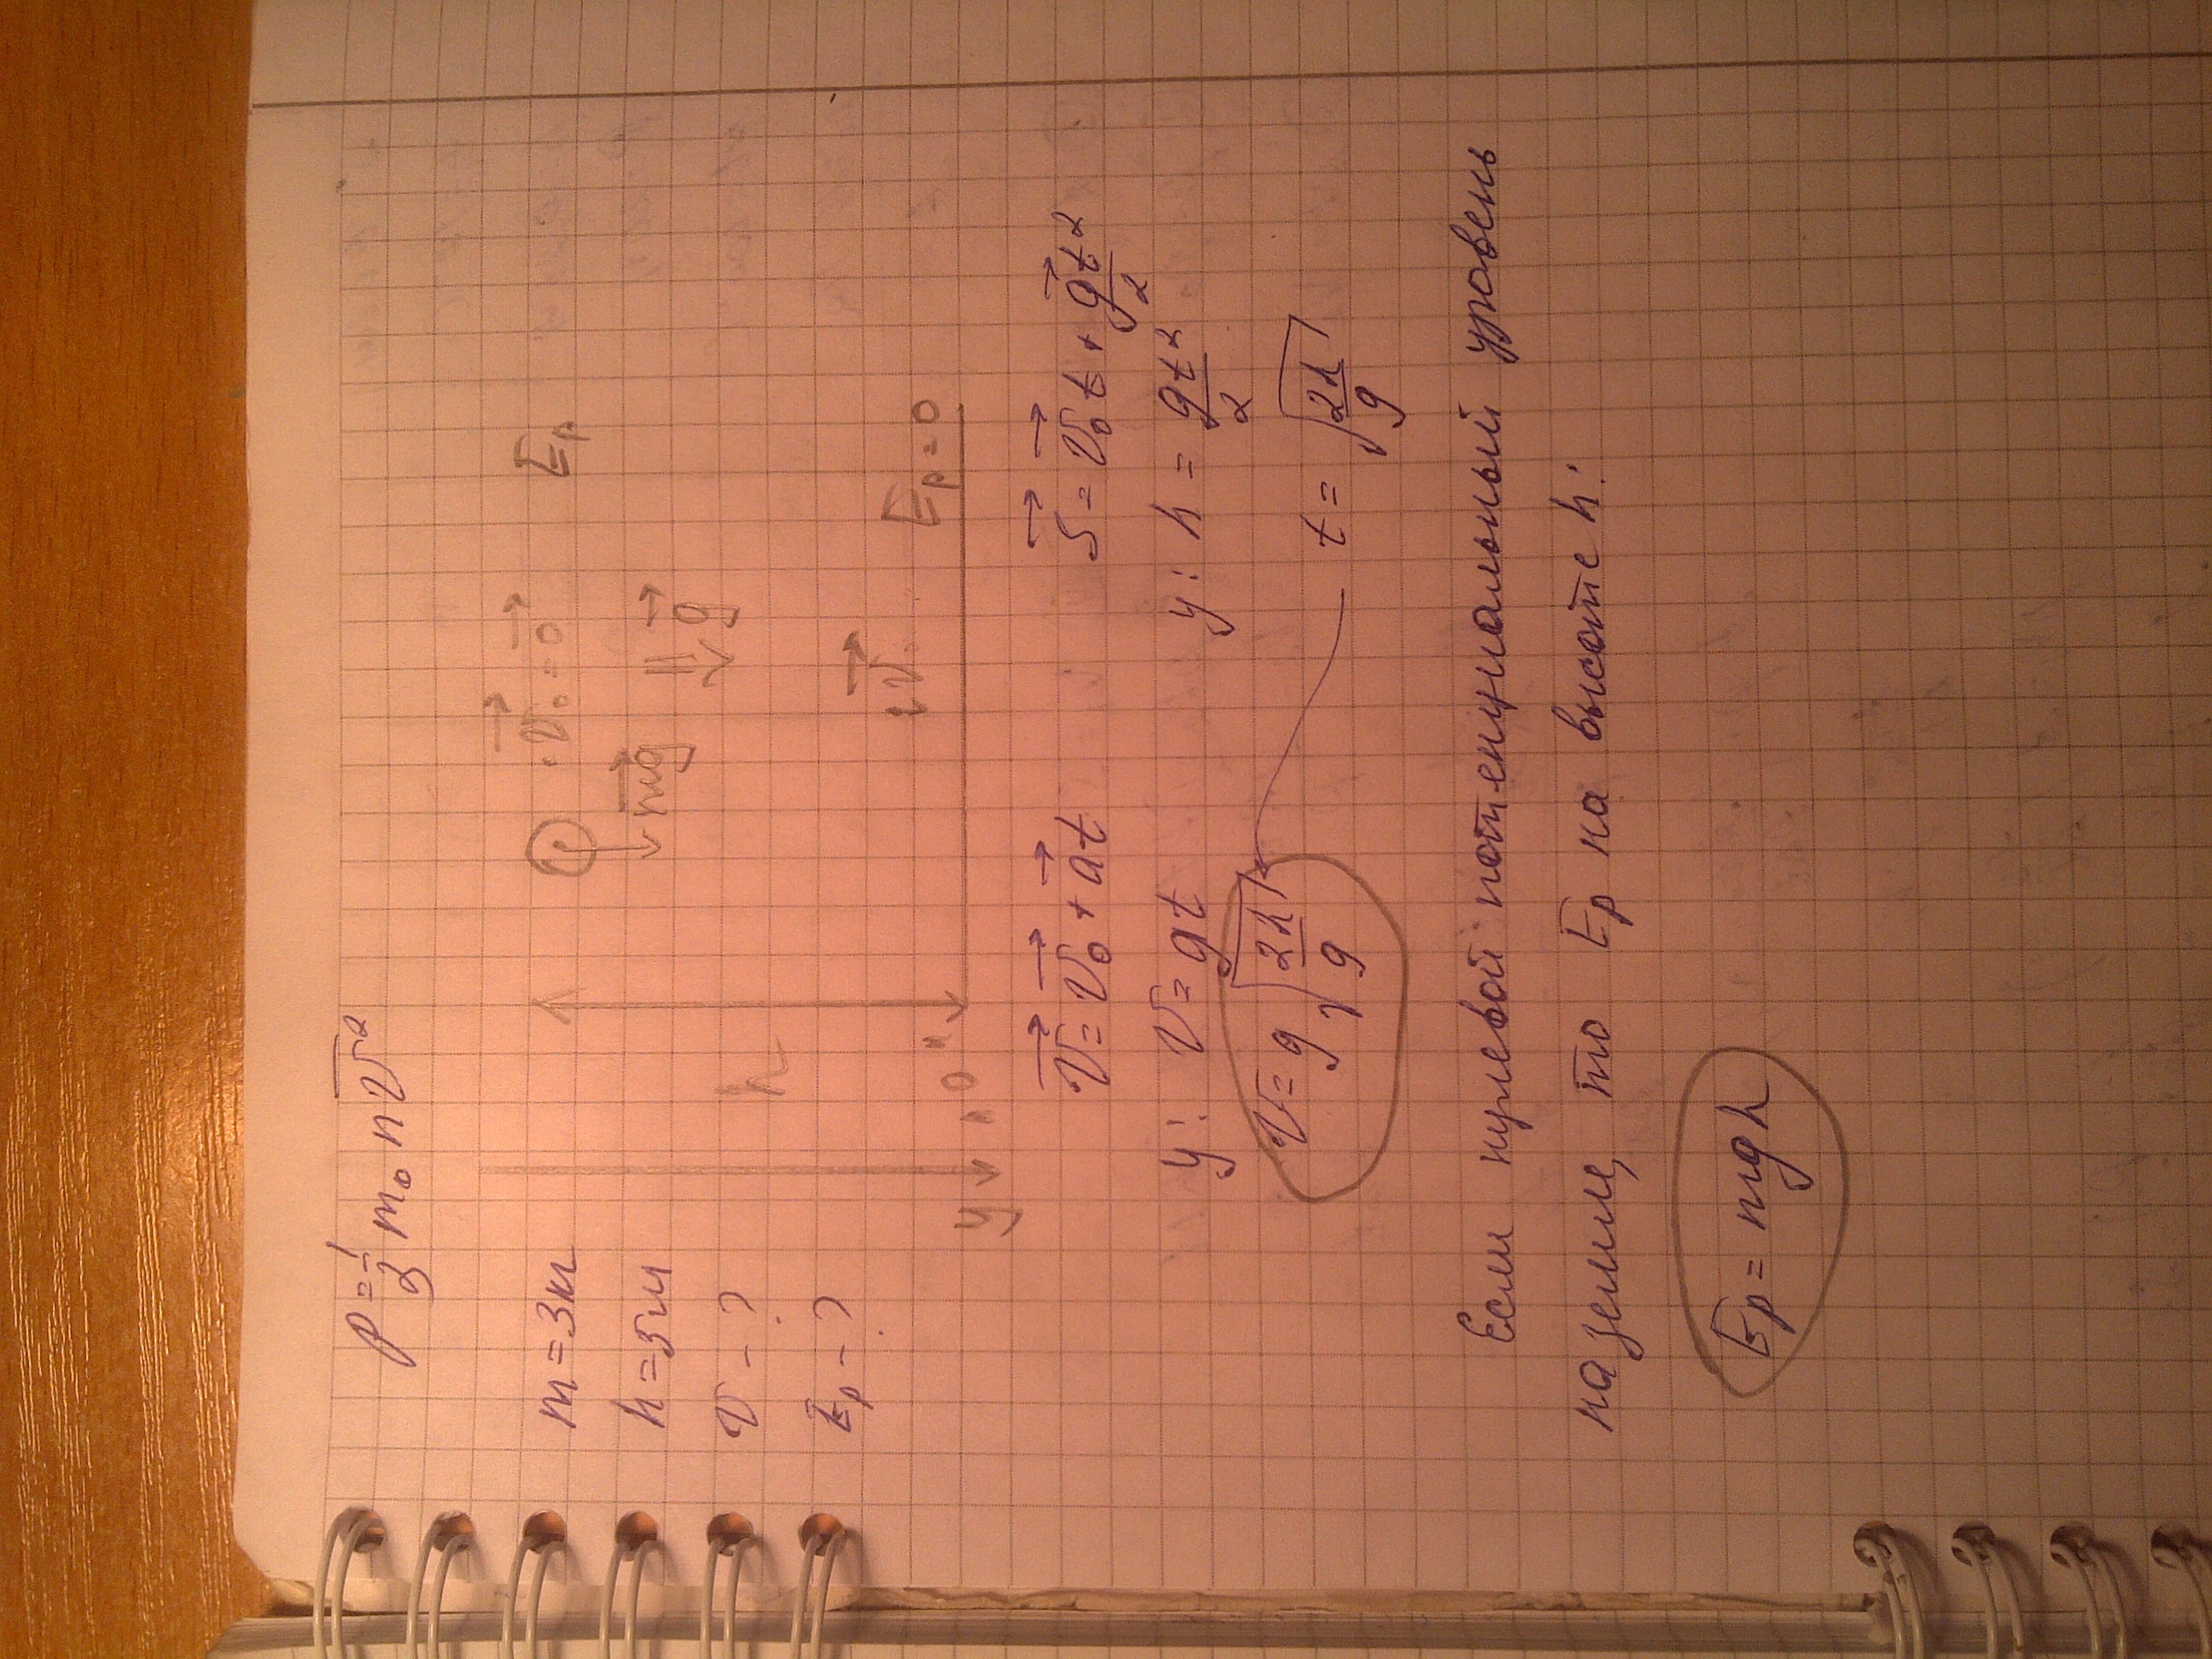 P = 1/3 m₀ n v̅²
m = 3кг
h = 5м
v - ?
Eₚ - ?
v⃗₀ = 0⃗
Eₚ
mg⃗
g⃗
h
v⃗
Eₚ = 0
"0"
y
v⃗ = v⃗₀ + a⃗t
S⃗ = v⃗₀t + g⃗t²/2
y: v = gt
y: h = gt²/2
v = g√(2h/g)
t = √(2h/g)
Если нулевой потенциальный уровень
на земле, то Eₚ на высоте h:
Eₚ = mgh